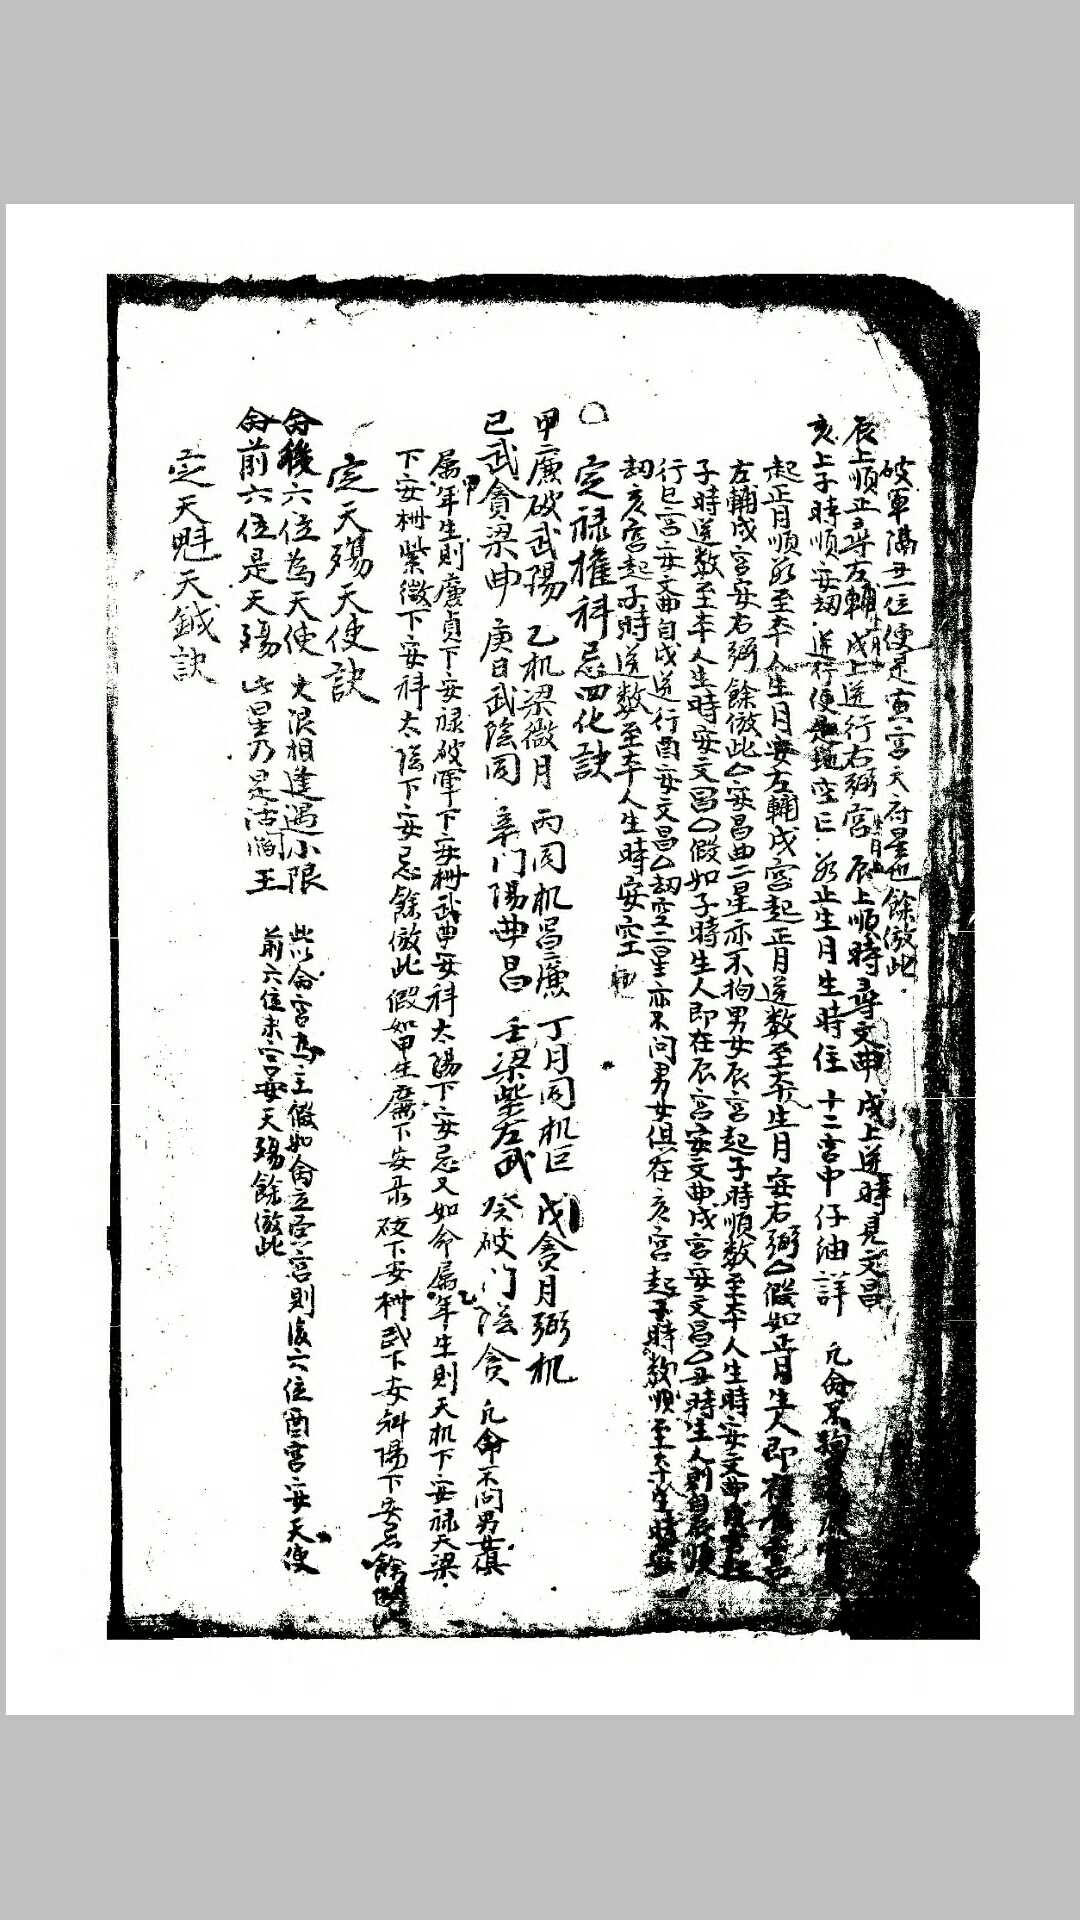 破軍隔丑一位便是寅宮天府星也餘倣此
辰上順正尋左輔戌上逆行右弼宮辰上順時尋文曲戌上逆時見文昌
亥上子時順安刼逆行便是地空亡若止生月生時住十二宮中仔細詳 凢命不拘
起正月順数至本人生月安左輔戌宮起正月逆数至本人生月安右弼〇假如正月生人即在辰宮
左輔戌宮安右弼餘倣此〇安昌曲二星亦不拘男女辰宮起子時順数至本人生時安文曲
子時逆数至本人生時安文昌〇假如子時生人即在辰宮安文曲戌宮安文昌〇丑時生人則自辰順
行巳宮安文曲自戌逆行酉安文昌〇刼空二星亦不问男女俱在亥宮起子時数順至本生時安
刼亥宮起子時逆数至本人生時安空
〇 定禄權科忌四化訣
甲廉破武陽 乙机梁微月 丙同机昌廉 丁月同机巨 戊貪月弼机
己武貪梁曲 庚日武陰同 辛门陽曲昌 壬梁紫左武 癸破门陰貪 凢命不问男女俱
属甲年生則廉貞下安禄破軍下安权武曲安科太陽下安忌又如命属乙年生則天机下安禄天梁
下安权紫微下安科太陰下安忌餘倣此假如甲生廉下安录破下安权武下安科陽下安忌餘倣此
定天殤天使訣
命後六位為天使 大限相逢遇小限 此以命宮為主假如命立丑宮則後六位酉宮安天使
命前六位是天殤 此星乃是活阎王 前六位未宮安天殤餘倣此
定天魁天鉞訣